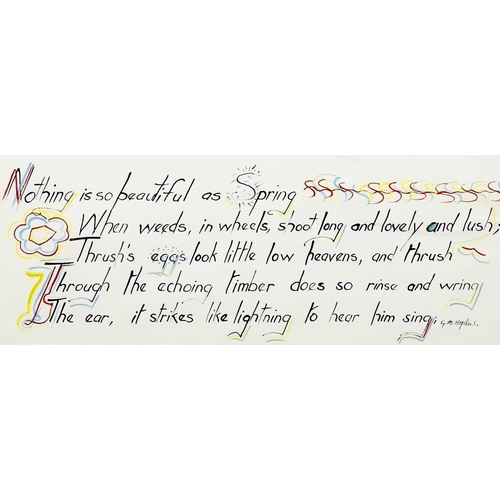 Nothing is so beautiful as Spring
When weeds, in wheels, shoot long and lovely and lush;
Thrush's eggs look little low heavens, and thrush
Through the echoing timber does so rinse and wring
The ear, it strikes like lightning to hear him sing; G.M. Hopkins.